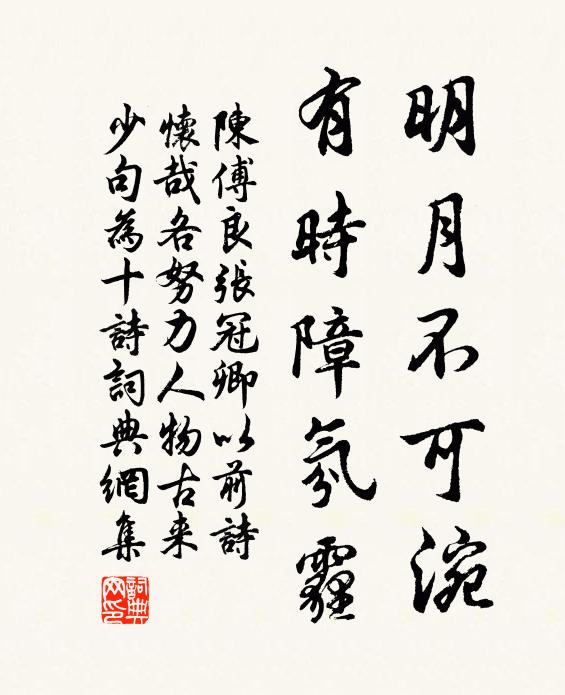 明月不可涴
有時障氛霾
陳傅良張冠卿以前詩
懷哉各努力人物古来
少句為十詩詞典網集
詞典網印